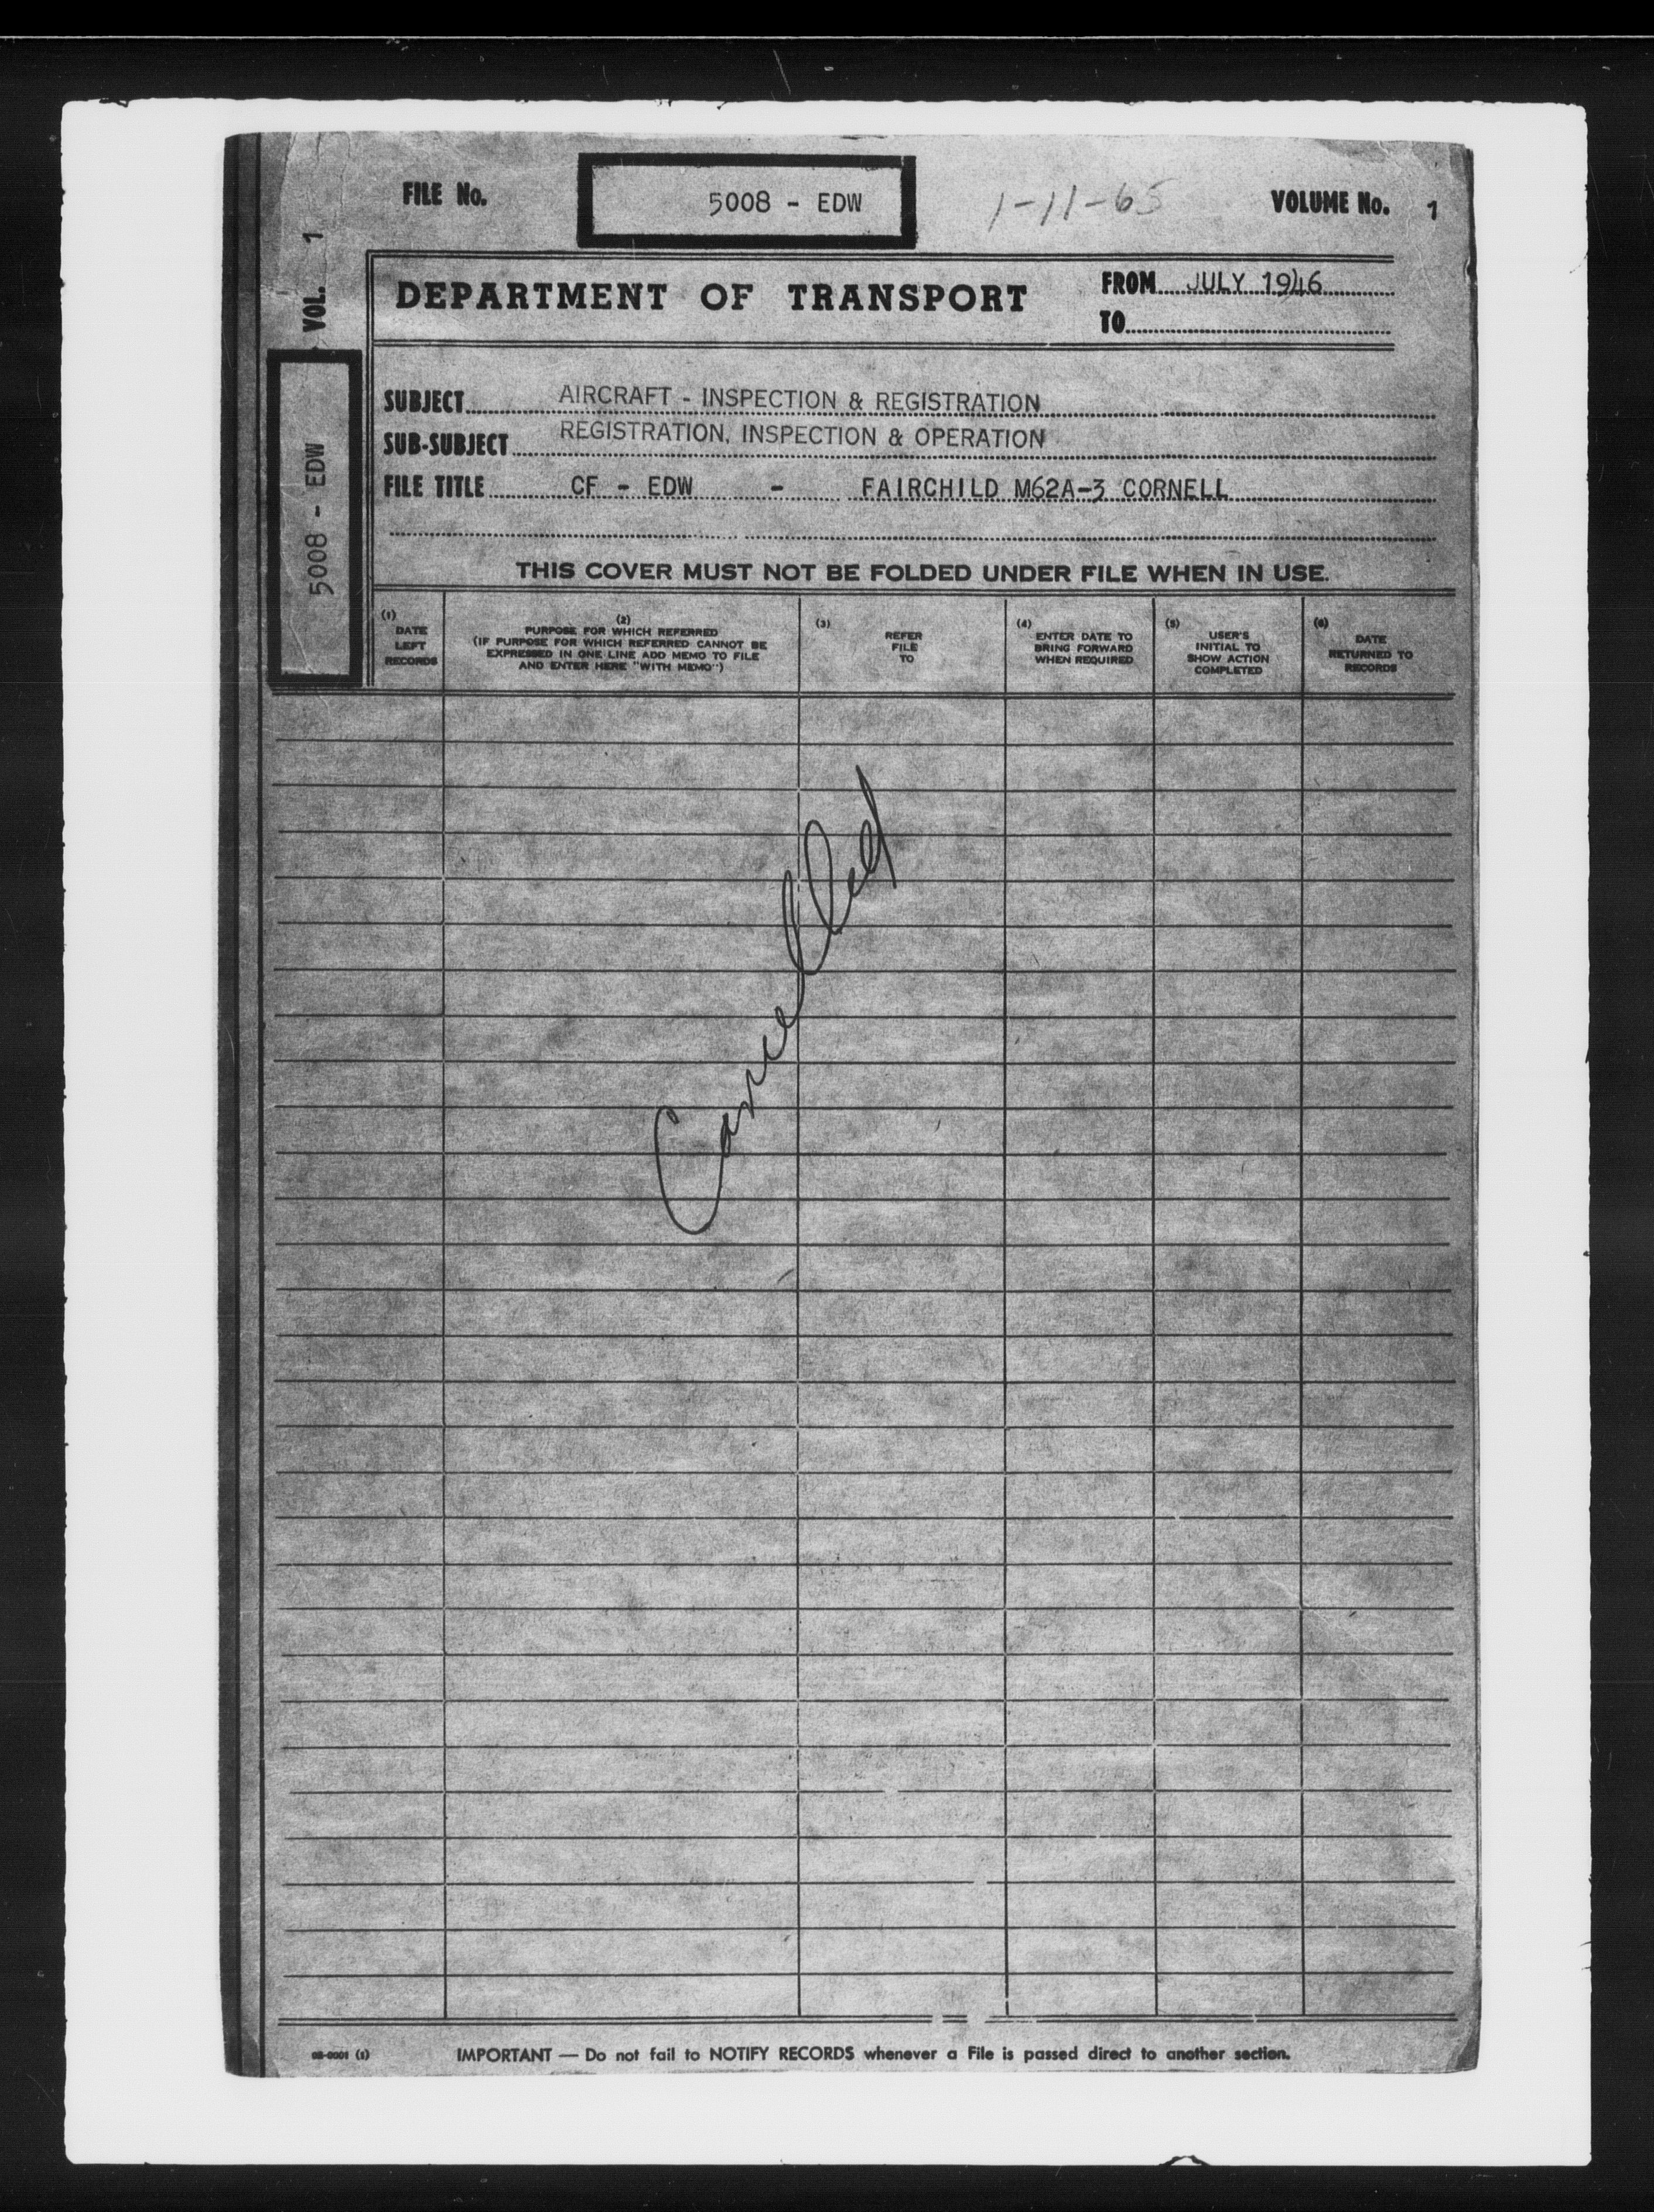 FILE No. 5008 - EDW 1-11-65 VOLUME No. 1
VOL. 1
5008 - EDW
DEPARTMENT OF TRANSPORT
FROM JULY 1946
TO
SUBJECT AIRCRAFT - INSPECTION & REGISTRATION
SUB-SUBJECT REGISTRATION, INSPECTION & OPERATION
FILE TITLE CF - EDW - FAIRCHILD M62A-3 CORNELL
THIS COVER MUST NOT BE FOLDED UNDER FILE WHEN IN USE.
(1)
DATE
LEFT
RECORDS
(2)
PURPOSE FOR WHICH REFERRED
(IF PURPOSE FOR WHICH REFERRED CANNOT BE
EXPRESSED IN ONE LINE ADD MEMO TO FILE
AND ENTER HERE "WITH MEMO")
(3)
REFER
FILE
TO
(4)
ENTER DATE TO
BRING FORWARD
WHEN REQUIRED
(5)
USER'S
INITIAL TO
SHOW ACTION
COMPLETED
(6)
DATE
RETURNED TO
RECORDS
Cancelled
08-0001 (1)
IMPORTANT — Do not fail to NOTIFY RECORDS whenever a File is passed direct to another section.